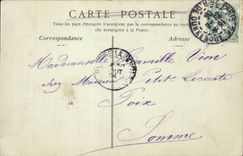 CARTE POSTALE
Tous les pays étrangers n'acceptent pas la correspondance au recto
(Se renseigner à la Poste).
Correspondance
Adresse
Mademoiselle Camille Vion
chez Monsieur Petit Lecomte
à
Poix
Somme